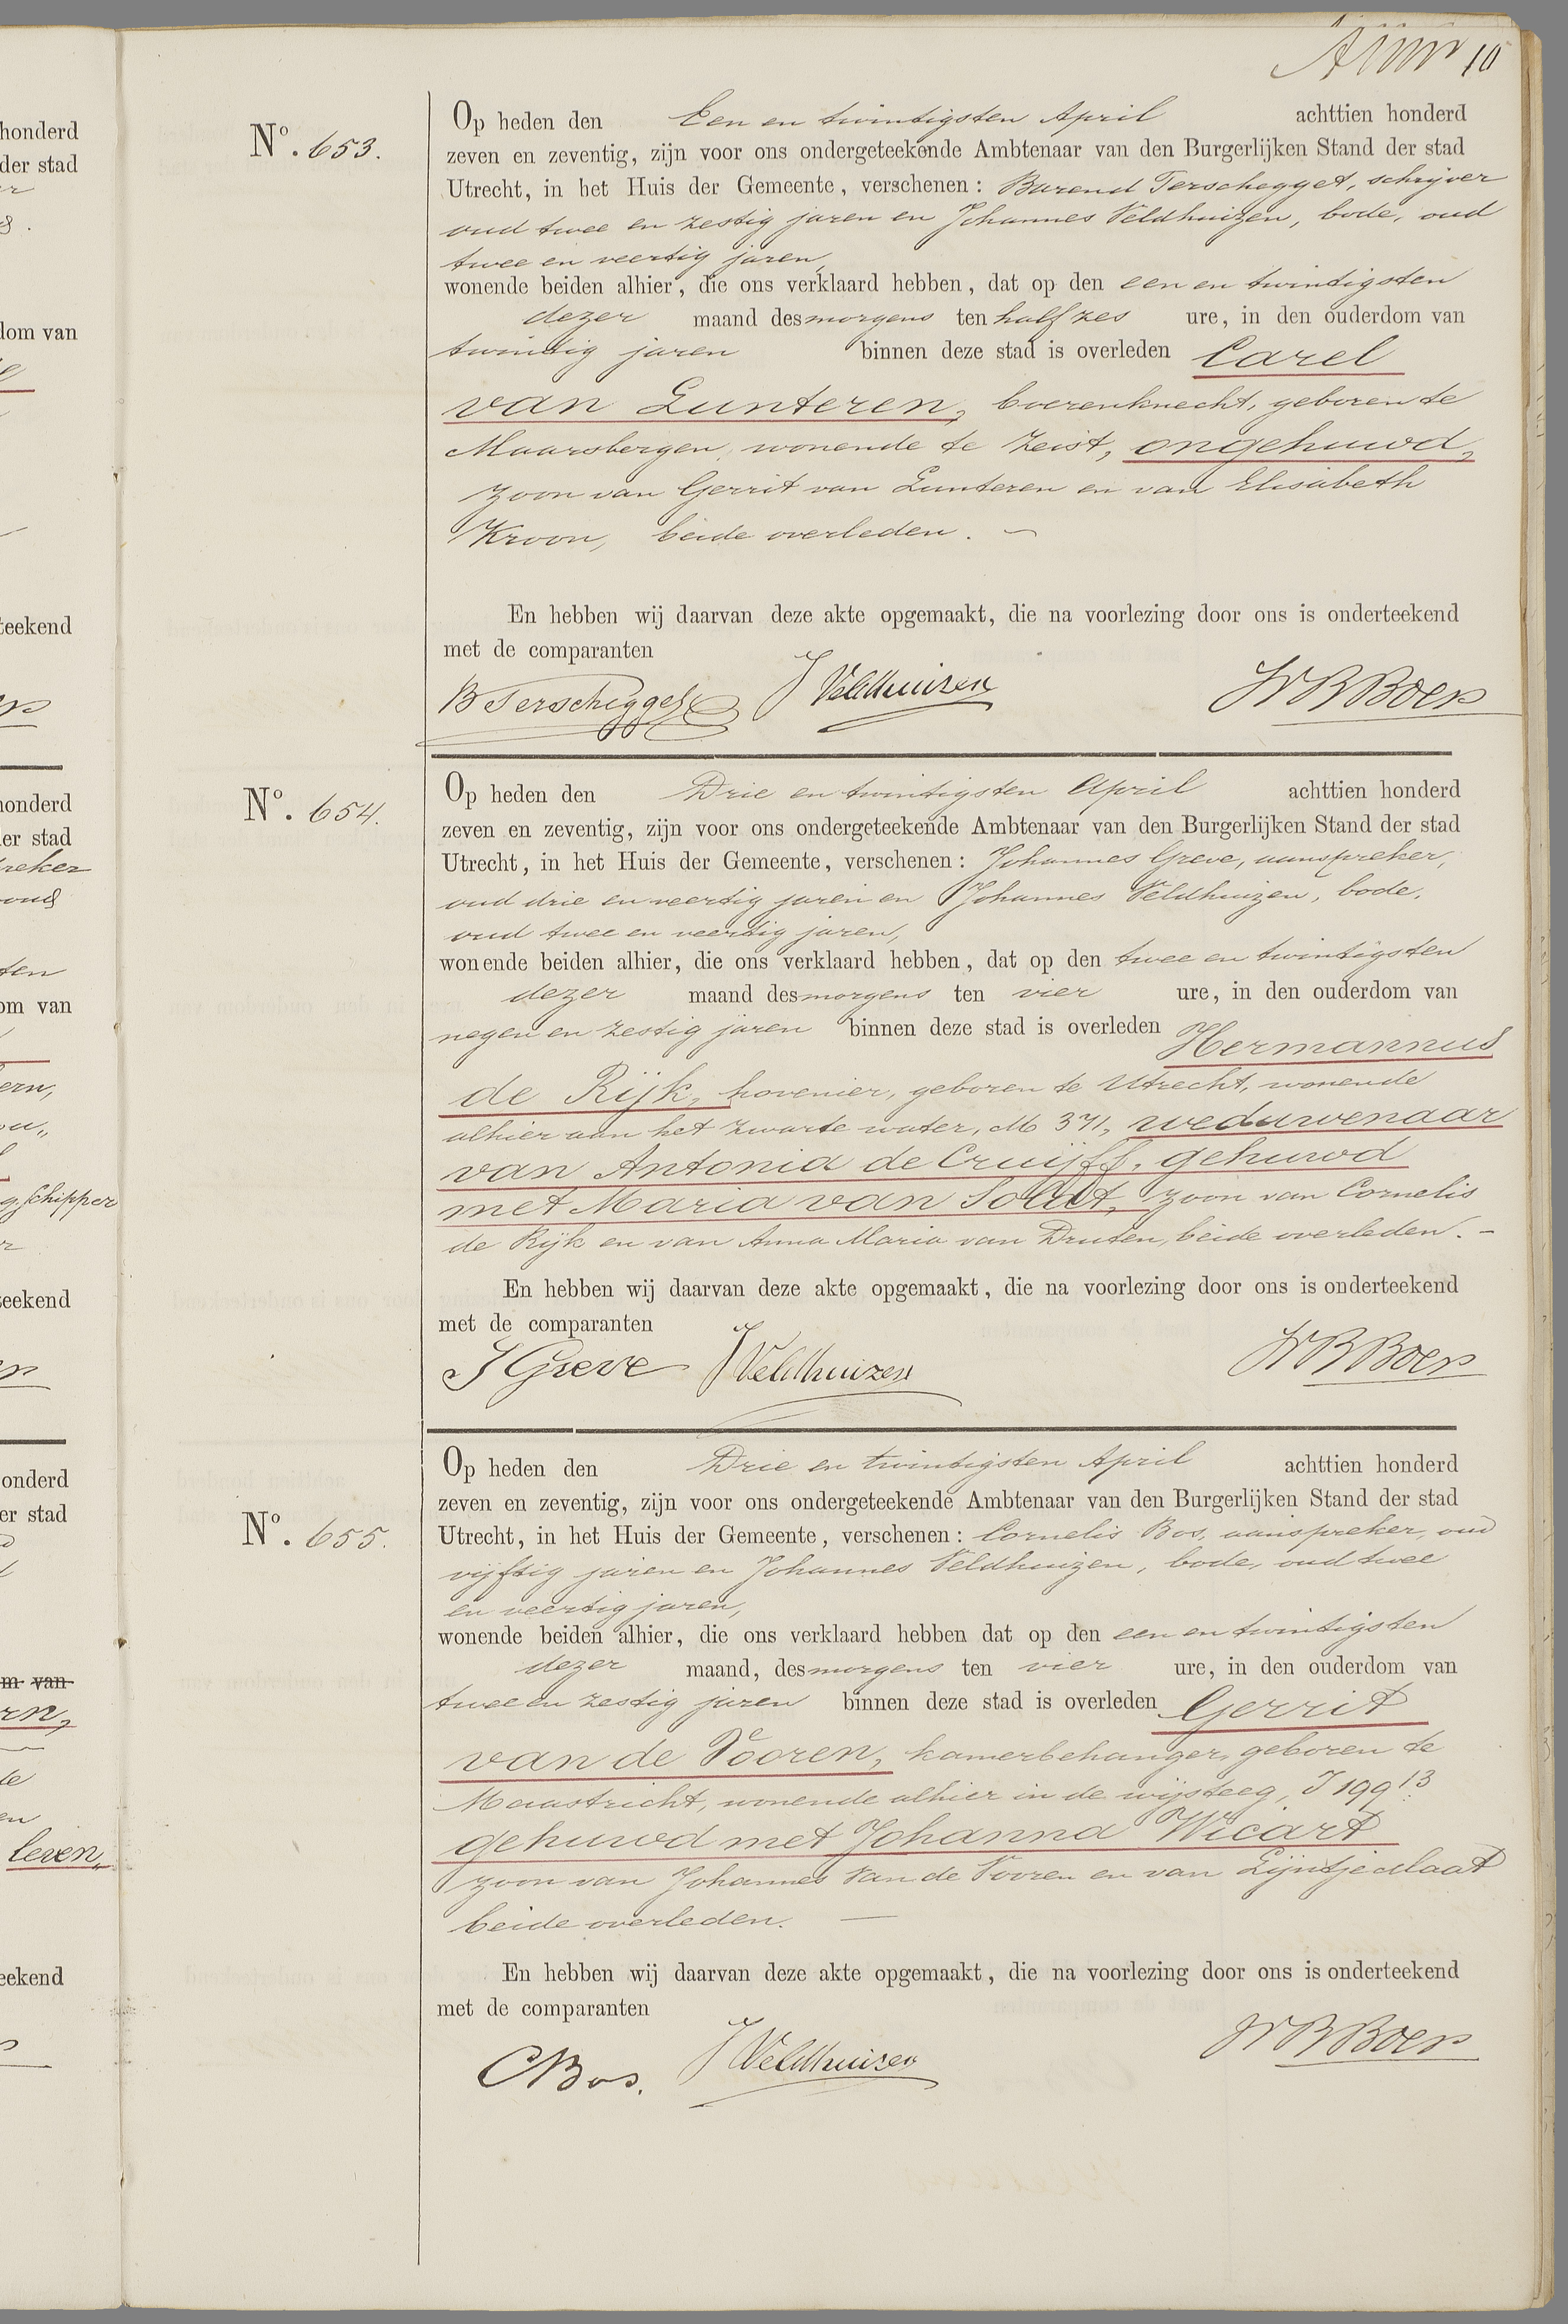 10
Nº. 653.
Op heden den Een en twintigsten April achttien honderd
zeven en zeventig, zijn voor ons ondergeteekende Ambtenaar van den Burgerlijken Stand der stad
Utrecht, in het Huis der Gemeente, verschenen: Barend Terschegget, schrijver
oud twee en zestig jaren en Johannes Veldhuizen, bode, oud
twee en veertig jaren,
wonende beiden alhier, die ons verklaard hebben, dat op den een en twintigsten
dezer maand des morgens ten half zes ure, in den ouderdom van
twintig jaren binnen deze stad is overleden Carel
van Lunteren, boerenknecht, geboren te
Maarsbergen, wonende te Zeist, ongehuwd,
zoon van Gerrit van Lunteren en van Elisabeth
Kroon, beide overleden. —
En hebben wij daarvan deze akte opgemaakt, die na voorlezing door ons is onderteekend
met de comparanten
B Terschegget J Veldhuizen W B Boers
Nº. 654.
Op heden den Drie en twintigsten April achttien honderd
zeven en zeventig, zijn voor ons ondergeteekende Ambtenaar van den Burgerlijken Stand der stad
Utrecht, in het Huis der Gemeente, verschenen: Johannes Greve, aanspreker,
oud drie en veertig jaren en Johannes Veldhuizen, bode,
oud twee en veertig jaren,
wonende beiden alhier, die ons verklaard hebben, dat op den twee en twintigsten
dezer maand des morgens ten vier ure, in den ouderdom van
negen en zestig jaren binnen deze stad is overleden Hermannus
de Rijk, hovenier, geboren te Utrecht, wonende
alhier aan het zwarte water, M 371, weduwenaar
van Antonia de Cruijff, gehuwd
met Maria van Soldt, zoon van Cornelis
de Rijk en van Anna Maria van Druten, beide overleden. —
En hebben wij daarvan deze akte opgemaakt, die na voorlezing door ons is onderteekend
met de comparanten
J Greve J Veldhuizen W B Boers
Nº. 655.
Op heden den Drie en twintigsten April achttien honderd
zeven en zeventig, zijn voor ons ondergeteekende Ambtenaar van den Burgerlijken Stand der stad
Utrecht, in het Huis der Gemeente, verschenen: Cornelis Bos, aanspreker, oud
vijftig jaren en Johannes Veldhuizen, bode, oud twee
en veertig jaren,
wonende beiden alhier, die ons verklaard hebben dat op den een en twintigsten
dezer maand, des morgens ten vier ure, in den ouderdom van
twee en zestig jaren binnen deze stad is overleden Gerrit
van de Vooren, kamerbehanger, geboren te
Maastricht, wonende alhier in de wijsteeg, J 199 13
gehuwd met Johanna Wicart
zoon van Johannes Van de Vooren en van Lijntje Maat
beide overleden. —
En hebben wij daarvan deze akte opgemaakt, die na voorlezing door ons is onderteekend
met de comparanten
C Bos. J Veldhuizen W B Boers